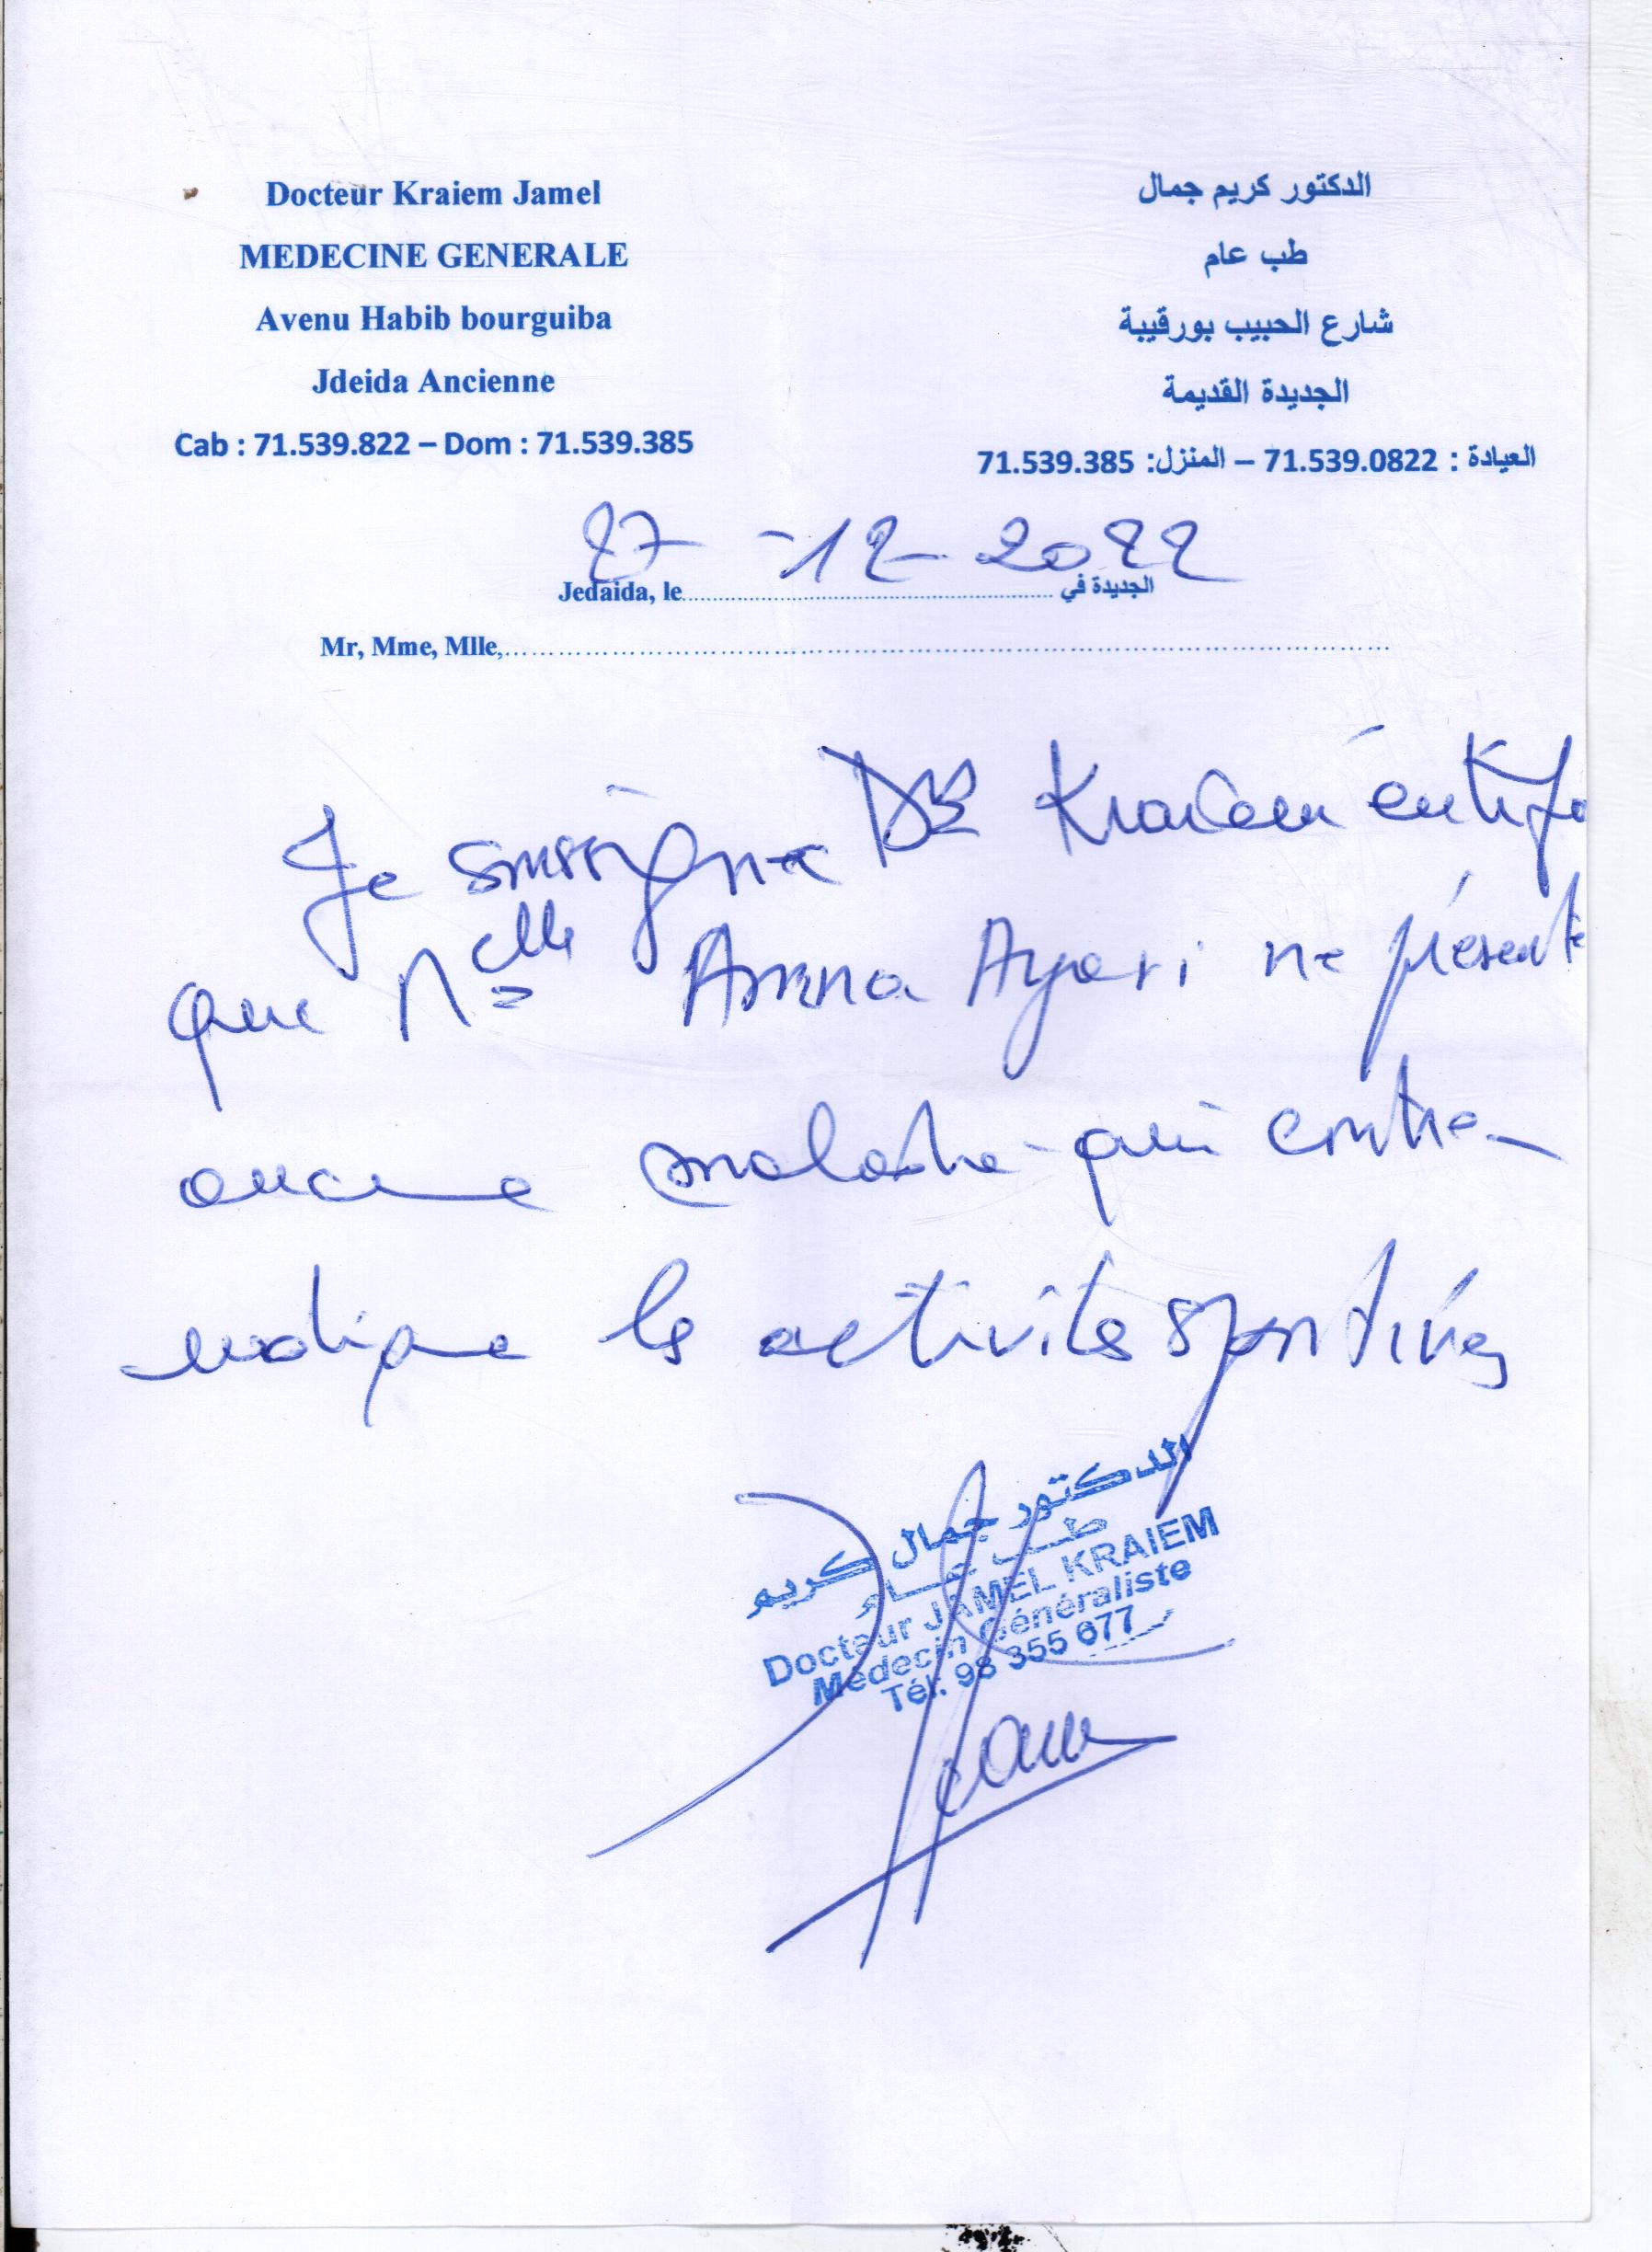 Docteur Kraiem Jamel
MEDECINE GENERALE
Avenu Habib bourguiba
Jdeida Ancienne
Cab : 71.539.822 – Dom : 71.539.385
الدكتور كريم جمال
طب عام
شارع الحبيب بورقيبة
الجديدة القديمة
العيادة : 71.539.0822 – المنزل: 71.539.385
27 - 12 - 2022
Jedaida, le الجديدة في
Mr, Mme, Mlle,
Je soussigné Dr Kraiem
que Melle Amna Ayari ne présente
aucune maladie qui contre-
indique les activités sportives
الدكتور جمال كريم
طب عام
Docteur JAMEL KRAIEM
Médecin Généraliste
Tél: 98 355 677